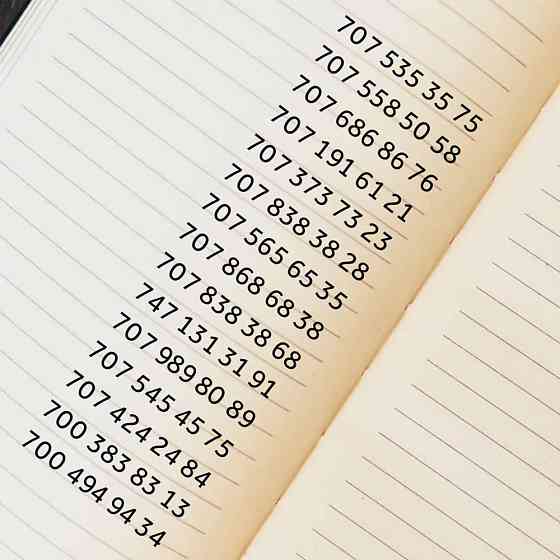 707 535 35 75
707 558 50 58
707 686 86 76
707 191 61 21
707 373 73 23
707 838 38 28
707 565 65 35
707 868 68 38
707 838 38 68
747 131 31 91
707 989 80 89
707 545 45 75
707 424 24 84
700 383 83 13
700 494 94 34